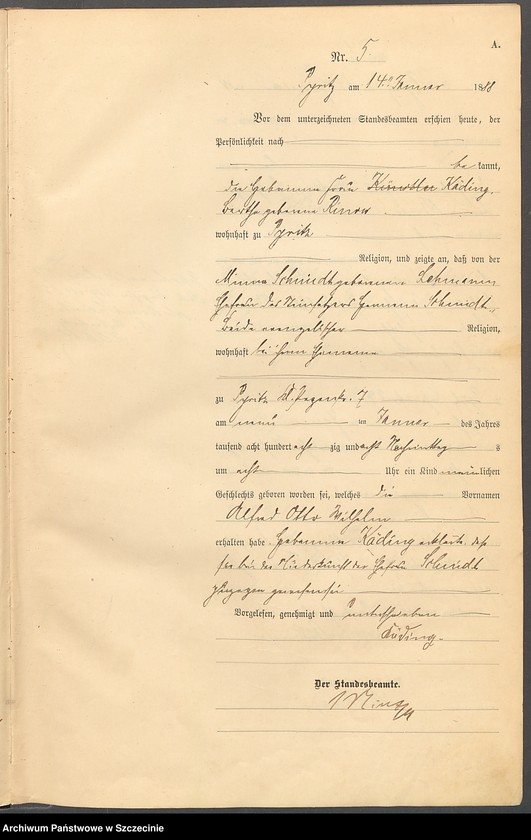 A.
Nr. 5
Pyritz am 14. Januar 1888
Vor dem unterzeichneten Standesbeamten erschien heute, der
Persönlichkeit nach
be kannt,
die Hebamme Frau Künstler Käding,
Bertha geborene
wohnhaft zu Pyritz
Religion, und zeigte an, daß von der
Minna Schmidt geborenen Lehmann
Ehefrau des Steinsetzers Hermann Schmidt,
Beide evangelischer Religion,
wohnhaft bei ihrem Ehemanne
zu Pyritz 7
am neun ten Januar des Jahres
tausend acht hundert acht zig und acht Nachmittag s
um acht Uhr ein Kind männ lichen
Geschlechts geboren worden sei, welches die Vornamen
Alfred Otto Wilhelm
erhalten habe. Hebamme Käding erklärte, daß
sie bei der Niederkunft der Ehefrau Schmidt
zugegen gewesen sei
Vorgelesen, genehmigt und unterschrieben
Käding.
Der Standesbeamte.
Archiwum Państwowe w Szczecinie